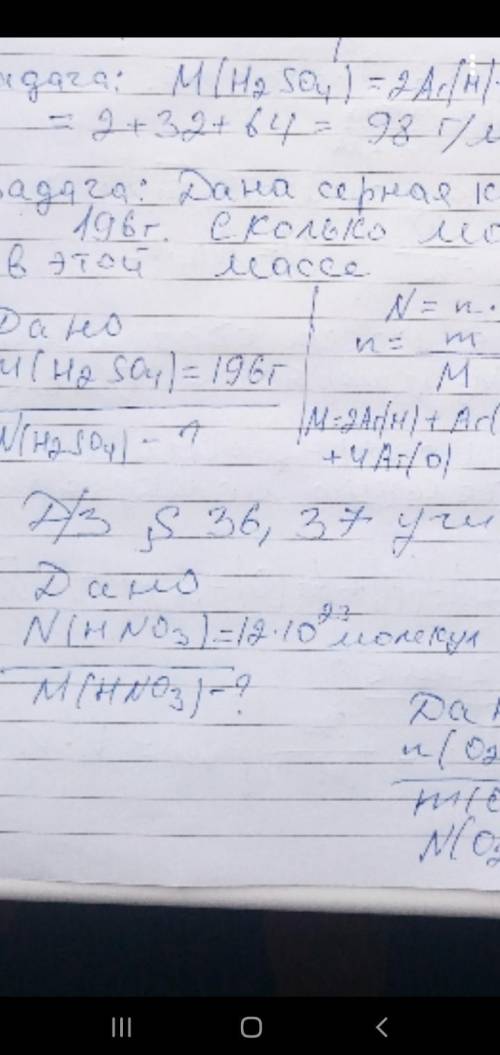 M(H2SO4)=2Ar(H)
= 2+32+64= 98 г/
Дана серная
196г. Сколько
в этой массе
Дано
M(H2SO4)=196г
N(H2SO4)-?
N=n·
n= m
M
M=2Ar(H)+Ar(
+4Ar(O)
Д/З § 36, 37
Дано
N(HNO3)=12·10^23 молекул
M(HNO3)-?
n(O2
N(O